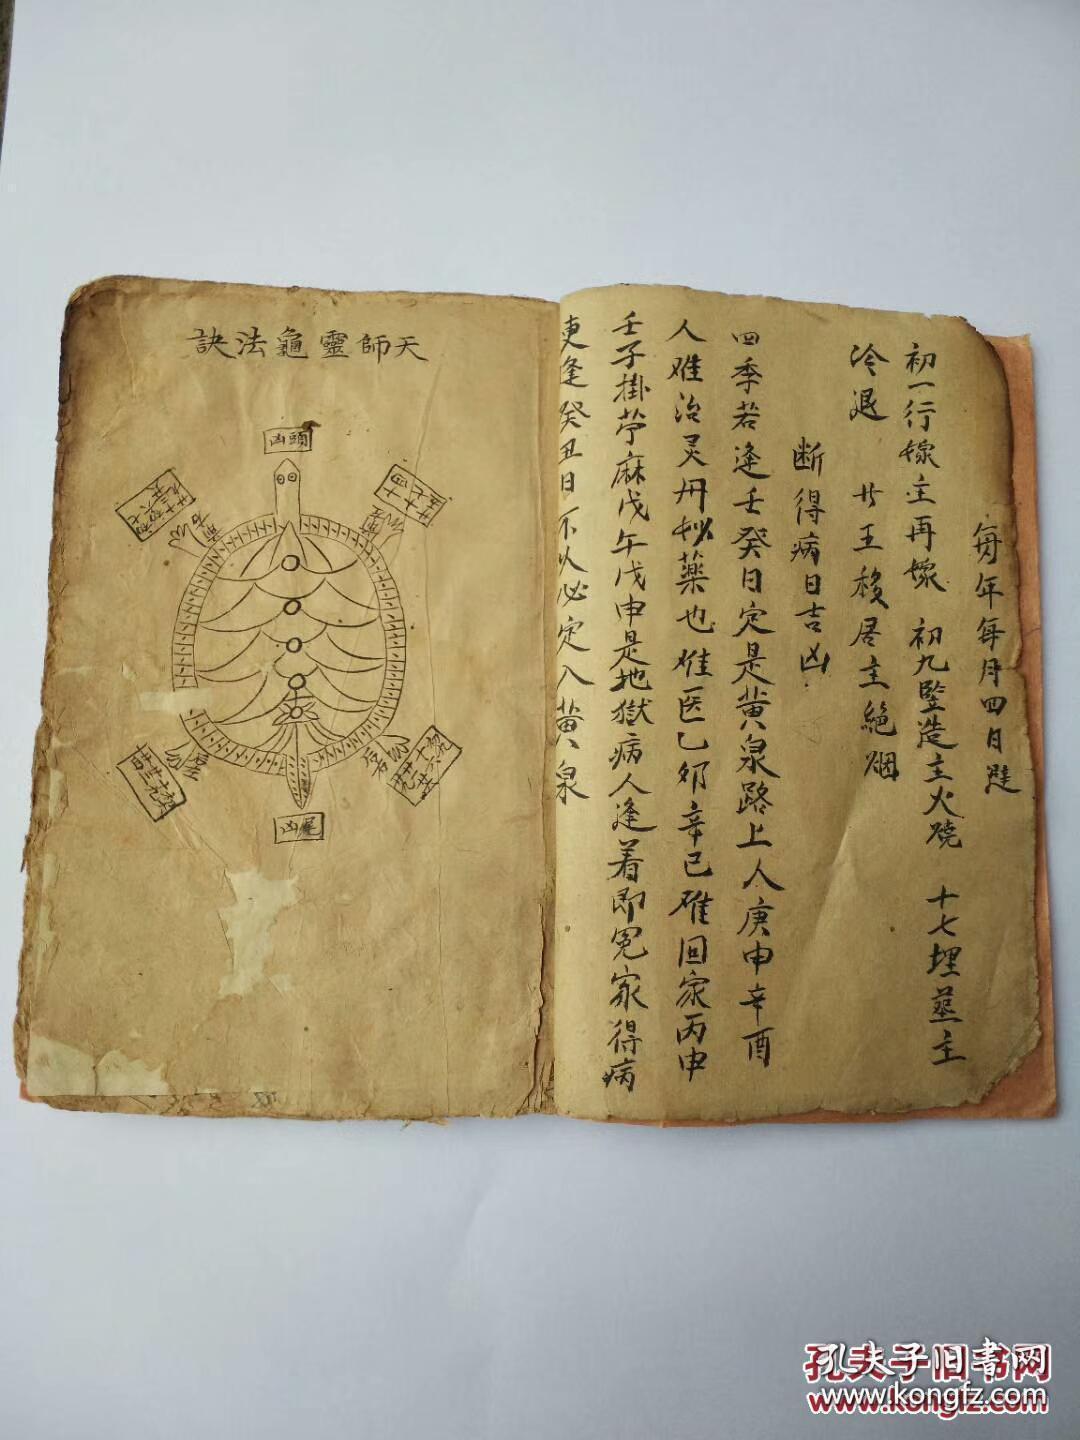 每年每月四日𨒪
初一行嫁主再嫁 初九竪造主火燒 十七埋葬主
冷退 廿五移居主絕烟
断得病日吉凶
四季若逢壬癸日定是黄泉路上人庚申辛酉
人难治灵丹妙藥也难医乙卯辛巳难回家丙申
壬子掛苧麻戊午戊申是地獄病人逢着即冤家得病
更逢癸丑日不久必定入黄泉
天師靈龜法訣
頭凶
尾凶
孔夫子旧書网
www.kongfz.com